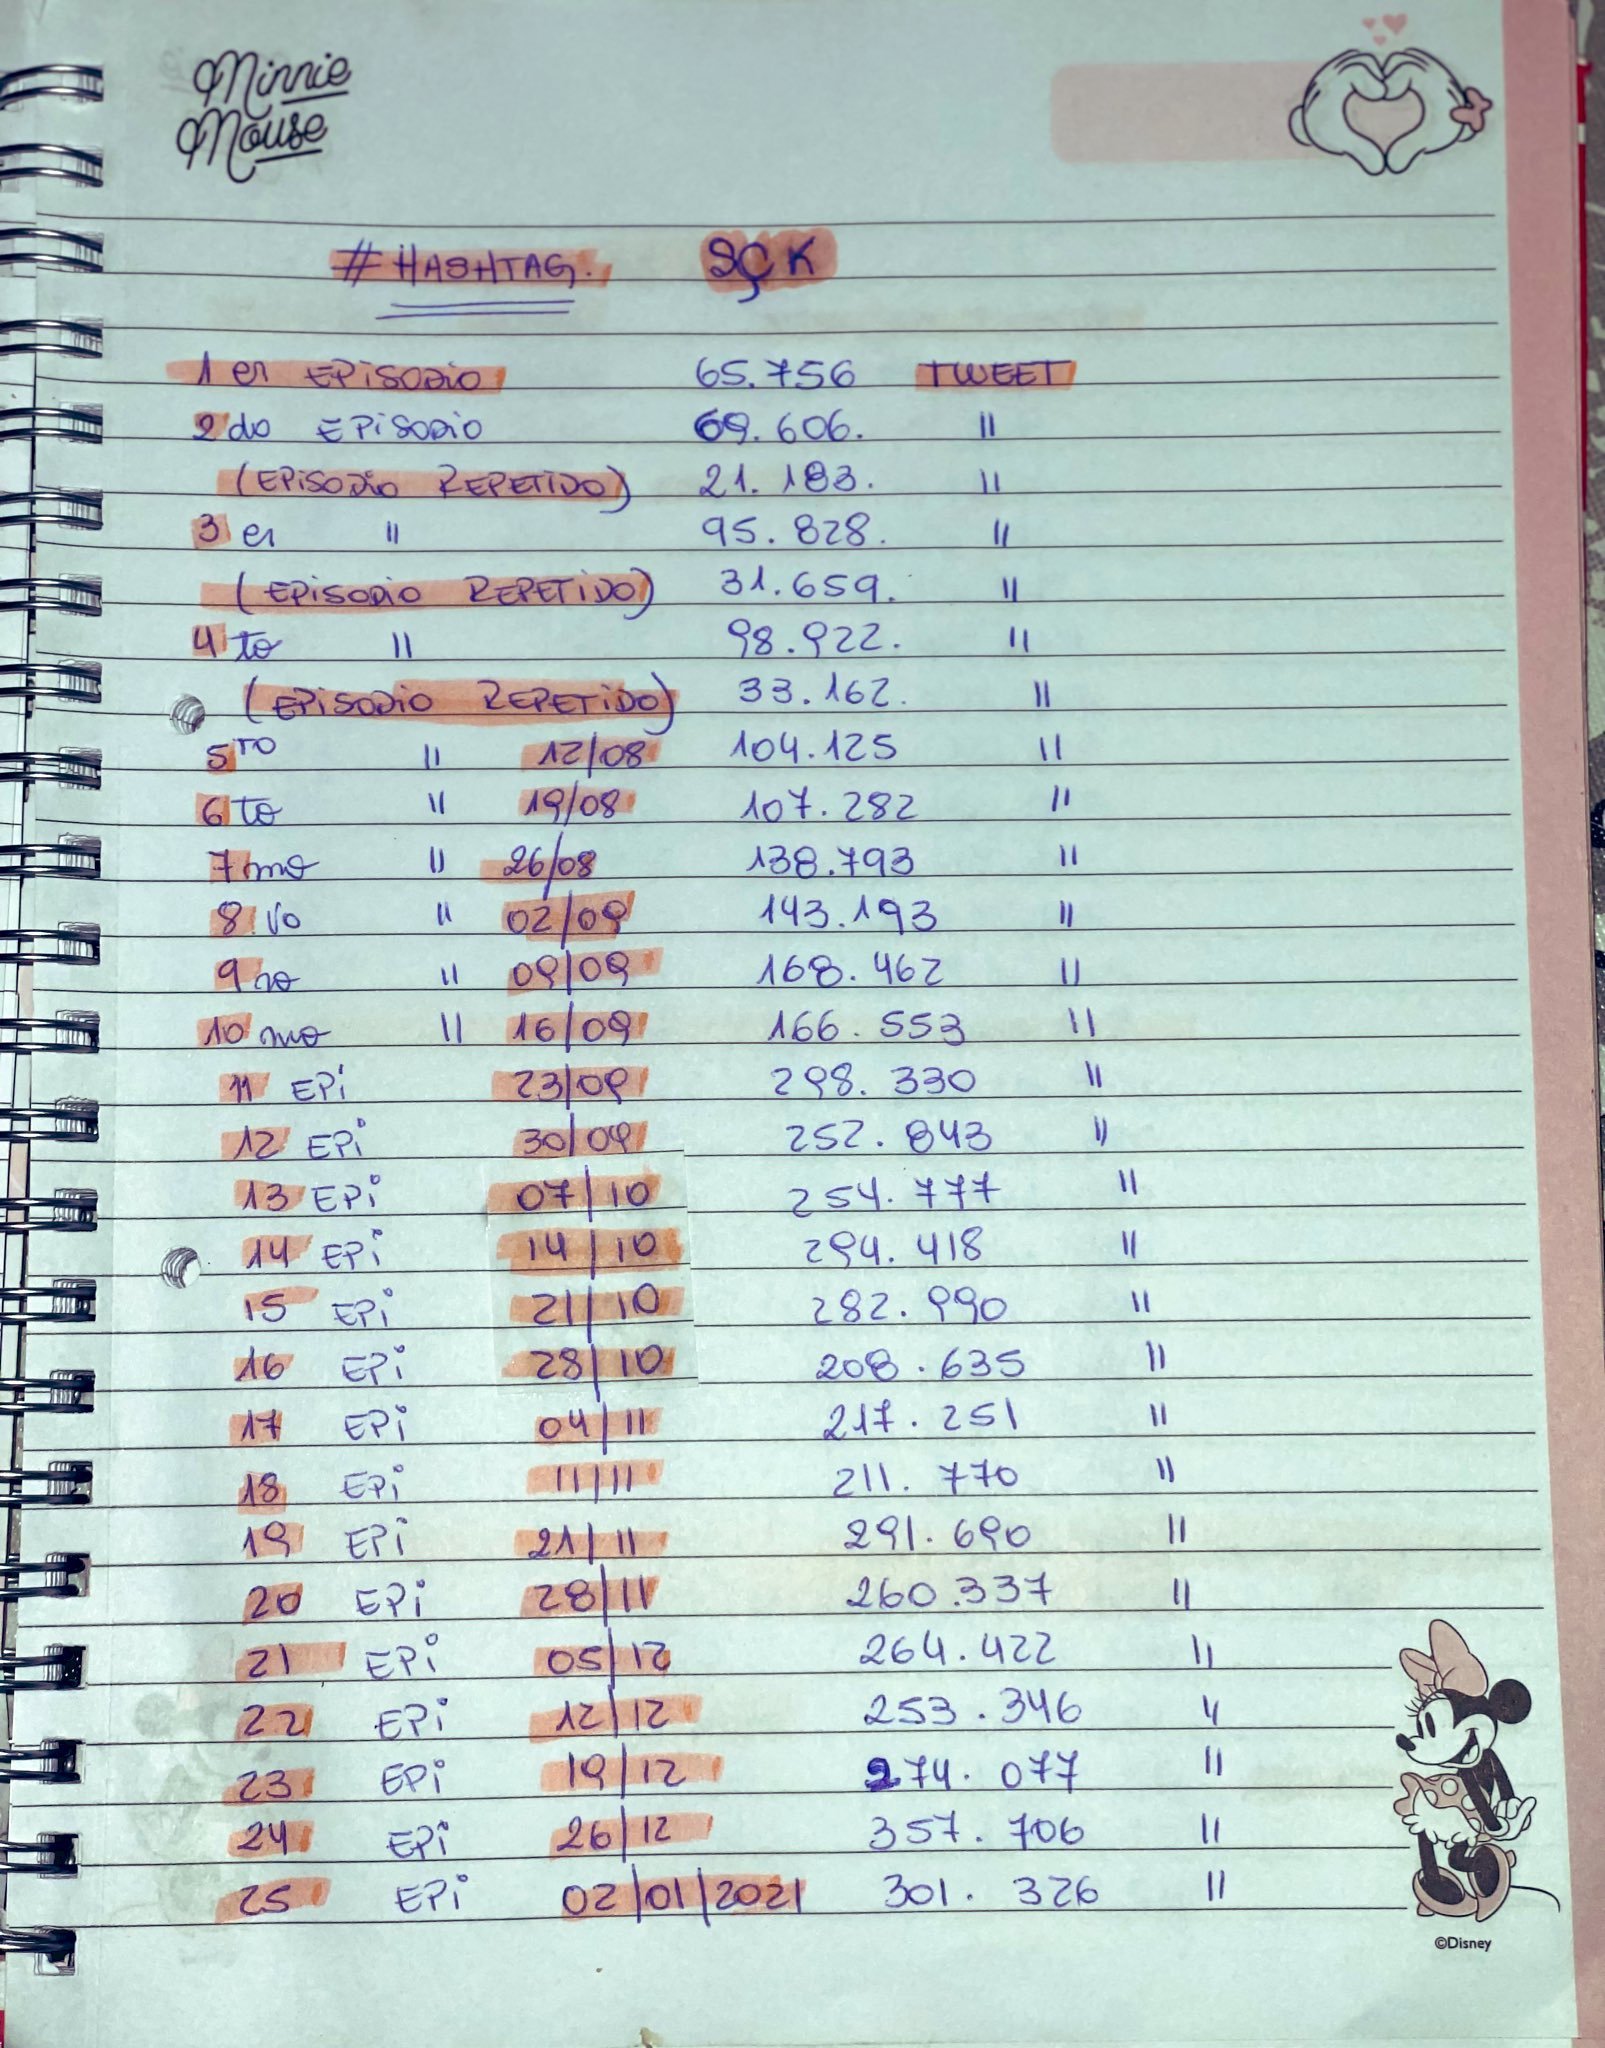 Minnie
Mouse
# HASHTAG. SÇK
1er EPISODIO 65.756 TWEET
2do EPISODIO 69.606. "
(EPISODIO REPETIDO) 21.183. "
3er " 95.828. "
(EPISODIO REPETIDO) 31.659. "
4to " 98.922. "
(EPISODIO REPETIDO) 33.162. "
5TO " 12/08 104.125 "
6to " 19/08 107.282 "
7mo " 26/08 138.793 "
8vo " 02/09 143.193 "
9no " 09/09 168.462 "
10mo " 16/09 166.553 "
11 EPi 23/09 298.330 "
12 EPi 30/09 252.843 "
13 EPi 07/10 254.777 "
14 EPi 14/10 294.418 "
15 EPi 21/10 282.990 "
16 EPi 28/10 208.635 "
17 EPi 04/11 217.251 "
18 EPi 11/11 211.770 "
19 EPi 21/11 291.690 "
20 EPi 28/11 260.337 "
21 EPi 05/12 264.422 "
22 EPi 12/12 253.346 "
23 EPi 19/12 274.077 "
24 EPi 26/12 357.706 "
25 EPi 02/01/2021 301.326 "
©Disney